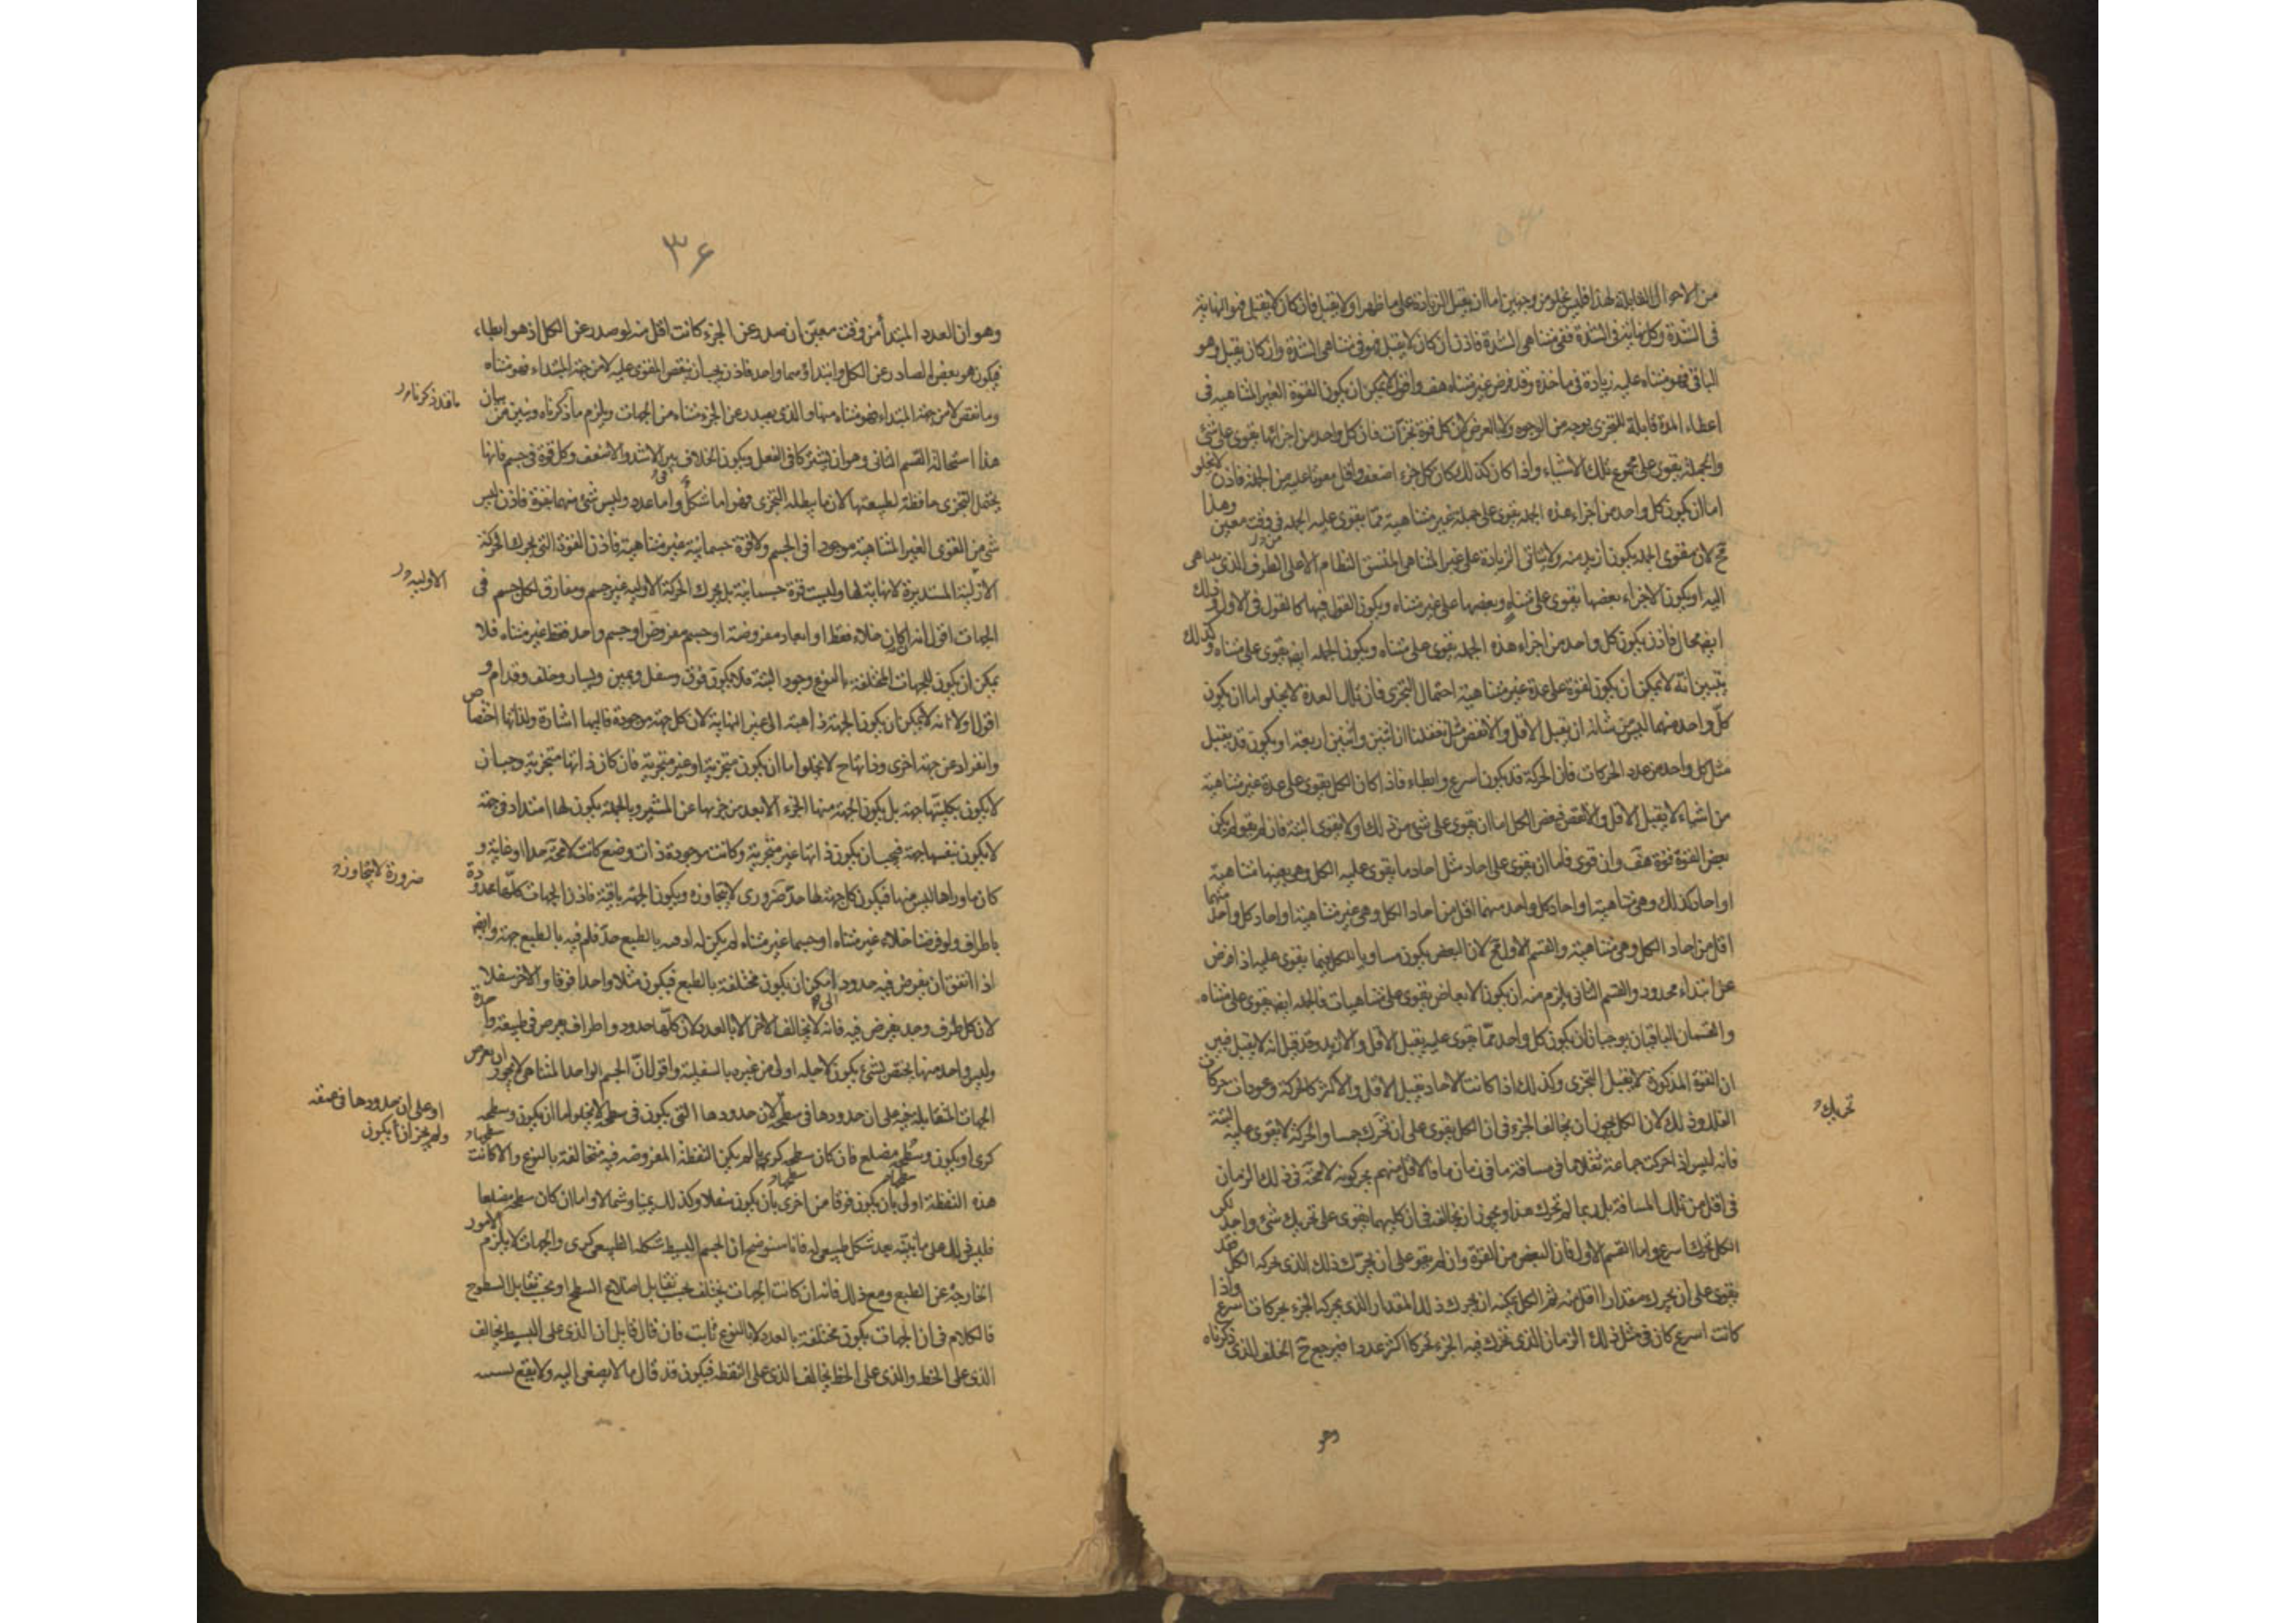 من الاحوال القابلة لهذا فليس يخلو من وجهين اما ان يقبل الزيادة على ما ظهر او لا يقبل فان كان لا يقبل فهو النهاية
فى الشدة وكل نهاية فى الشدة ففى متناهى الشدة فاذن ان كان لا يقبل فهو فى متناهى الشدة وان كان يقبل وهو
الباقى فهو متناه عليه زيادة فى ما اخذه وقد فرض غير متناه هف واقول لا يمكن ان يكون القوة الغير المتناهية فى
اعطاء المدة قابلة للتجزى بوجه من الوجوه ولا بالعرض لان كل قوة تجزأت فان كل واحد من اجزائها يقوى على شئ
والجملة يقوى على مجموع تلك الاشياء واذا كان كذلك كان كل جزء اضعف واقل مقويا عليه من الجملة فاذن لا يخلو
اما ان يكون كل واحد من اجزاء هذه الجملة يقوى على جملة غير متناهية مما يقوى عليه الجملة فى وقت معين وهذا
مح لان مقوى الجملة يكون ازيد منه ولا يتاتى الزيادة على غير المتناهى المتسق النظام الا على الطرف الذى يتناهى
اليه او يكون الاجزاء بعضها يقوى على متناه وبعضها على غير متناه ويكون القول فيها كالقول فى الاول وذلك
ايضا محال فاذن يكون كل واحد من اجزاء هذه الجملة يقوى على متناه ويكون الجملة ايضا يقوى على متناه وكذلك
يتبين انه لا يمكن ان يكون لقوة على عدة غير متناهية احتمال التجزى فان تلك العدة لا يخلو اما ان يكون
كل واحد منها ليس من شانه ان يقبل الاقل والانقص مثل تعقلنا ان اثنين واثنين اربعة او يكون قد يقبل
مثل كل واحد من عدد الحركات فان الحركة قد يكون اسرع وابطاء فاذا كان الكل يقوى على عدة غير متناهية
من اشياء لا يقبل الاقل والانقص فبعض الكل اما ان يقوى على شئ من ذلك او لا يقوى البتة فان لم يقو لم يكن
بعض القوة قوة هف وان قوى فاما ان يقوى على احاد مثل احاد ما يقوى عليه الكل وهى بعينها متناهية
او احاد كذلك وهى متناهية او احاد كل واحد منهما اقل من احاد الكل وهى غير متناهية او احاد كل واحد منهما
اقل من احاد الكل وهى متناهية والقسم الاول مح لان البعض يكون مساويا للكل فيما يقوى عليه اذا فرض
عن ابتداء محدود والقسم الثانى يلزم منه ان يكون الابعاض يقوى على متناهيات فالجملة ايضا يقوى على متناه
والقسمان الباقيان يوجبان ان يكون كل واحد مما يقوى عليه يقبل الاقل والازيد وقد قيل انه لا يقبل فبين
ان القوة المذكورة لا يقبل التجزى وكذلك اذا كانت الاحاد تقبل الاقل والاكثر كالحركة وعودات حركات
الفلك وذلك لان الكل يجوز ان يخالف الجزء فى ان الكل يقوى على ان تحرك جسما والجزء لا يقوى عليه البتة
تحريك
فانه ليس اذا حركت جماعة ثقلا ما فى مسافة ما فى زمان ما فالاقل منهم يحركونه لا محة فى ذلك الزمان
فى اقل من تلك المسافة بل ربما لم تحرك هذا ويجوز ان يخالفه فى ان كليهما يقوى على تحريك شئ واحد لكن
الكل تحرك اسرع واما القسم الاول فان البعض من القوة وان لم يقو على ان يحرك ذلك الذى حركه الكل فقد
يقوى على ان يحرك مقدارا اقل منه ثم الكل يمكنه ان يحرك ذلك المقدار الذى يحركه الجزء بحركات اسرع واذا
كانت اسرع كان فى مثل ذلك الزمان الذى تحرك فيه الجزء تحركا اكثر عددا فيرجع ح الخلف الذى ذكرناه
وهو
۳۶
وهو ان العدد المبتدأ من وقت معين ان صدر عن الجزء كانت اقل منه لو صدر عن الكل اذ هو ابطاء
فيكون هو بعض الصادر عن الكل وابتداؤهما واحد فاذن يجب ان ينقص المقوى عليه لا من جهة المبتداء فهو متناه
وما نقص لا من جهة المبتداء فهو متناه منها والذى يصدر عن الجزء متناه من الجهات ويلزم ما ذكرناه وتبين من بيان
ما قد ذكرنا
هذا استحالة القسم الثانى وهو ان يشتركا فى الفعل ويكون الخلاف بين الاشد والاضعف وكل قوة فى جسم فانها
يحتمل التجزى حافظة لطبيعتها لان ما يبطله التجزى فهو اما شكل واما عدد وليس شئ منهما بقوة فاذن ليس
شئ من القوى الغير المتناهية موجودا فى الجسم ولا قوة جسمانية غير متناهية فاذن القوة التى يحرك الحركة
الاولية
الازلية المستديرة لا نهاية لها وليست قوة جسمانية بل محرك الحركة الاولية غير جسم ومفارق لكل جسم فى
الجهات اقول انه ان كان خلاء فقط او ابعاد مفروضة او جسم مفروض او جسم واحد فقط غير متناه فلا
يمكن ان يكون للجهات المختلفة بالنوع وجود البتة فلا يكون فوق وسفل ويمين ويسار وخلف وقدام و
اقول اولا انه لا يمكن ان يكون الجهة ذاهبة الى غير النهاية لان كل جهة موجودة فاليها اشارة ولذاتها اختصاص
وانفراد عن جهة اخرى وذاتها ح لا يخلو اما ان يكون متجزية او غير متجزية فان كان ذاتها متجزية وجب ان
لا يكون بكليتها جهة بل يكون الجهة منها الجزء الابعد من جزيها عن المشير وبالجملة يكون لها امتداد فى جهة
لا يكون بنفسها جهة فيجب ان يكون ذاتها غير متجزية وكانت موجودة ذات وضع كانت لا محة حدا او غاية و
كان ما وراها ليس منها فيكون كل جهة لها حد ضرورى لا يتجاوزه ويكون الجهة باقية فاذن الجهات كلها محدودة
ضرورة لا يتجاوز
باطراف ولو فرضنا خلاء غير متناه او جسما غير متناه لم يكن له بالطبع حد فلم فيه بالطبع جهة وايضا
اذا اتفق ان يفرض فيه حدود امكن ان يكون مختلفة بالطبع فيكون مثلا واحدا فوقا والاخر سفلا
لان كل طرف وحد يفرض فيه فانه لا يخالف الاخر الا بالعدد لان كلها حدود واطراف يعرض فى طبيعة واحدة
وليس واحد منها يختص بشئ يكون لاجله اولى من غيره بالسفلية واقول ان الجسم الواحد المتناهى لا يجوز ان يعرض
الجهات المتقابلة فيه على ان حدودها فى سطحه لان حدودها التى يكون فى سطحه لا يخلو اما ان يكون وسطحه
او على ان حدودها فى عمقه
ولم يجز ان يكون
كرى او يكون وسطحه مضلع فان كان سطحه كريا لم يكن النقطة المفروضة فيه متخالفة بالنوع والا كانت
هذه النقطة اولى بان يكون فوقا من اخرى بان يكون سفلا وكذلك يمينا وشمالا واما ان كان سطحه مضلعا
فليس ذلك على ما نبينه بعد شكل طبيعى له فانا سنوضح ان الجسم البسيط شكله الطبيعى كرى والجهات لا يلزم الامور
الخارجة عن الطبع ومع ذلك فانه ان كانت الجهات يختلف بحسب تقابل اضلاع السطح او بحسب تقابل السطوح
فالكلام فى ان الجهات يكون مختلفة بالعدد لا بالنوع ثابت فان قال قايل ان الذى على البسيط يخالف
الذى على الخط والذى على الخط يخالف الذى على النقطة فيكون قد قال ما لا يصغى اليه ولا يقع بسببه